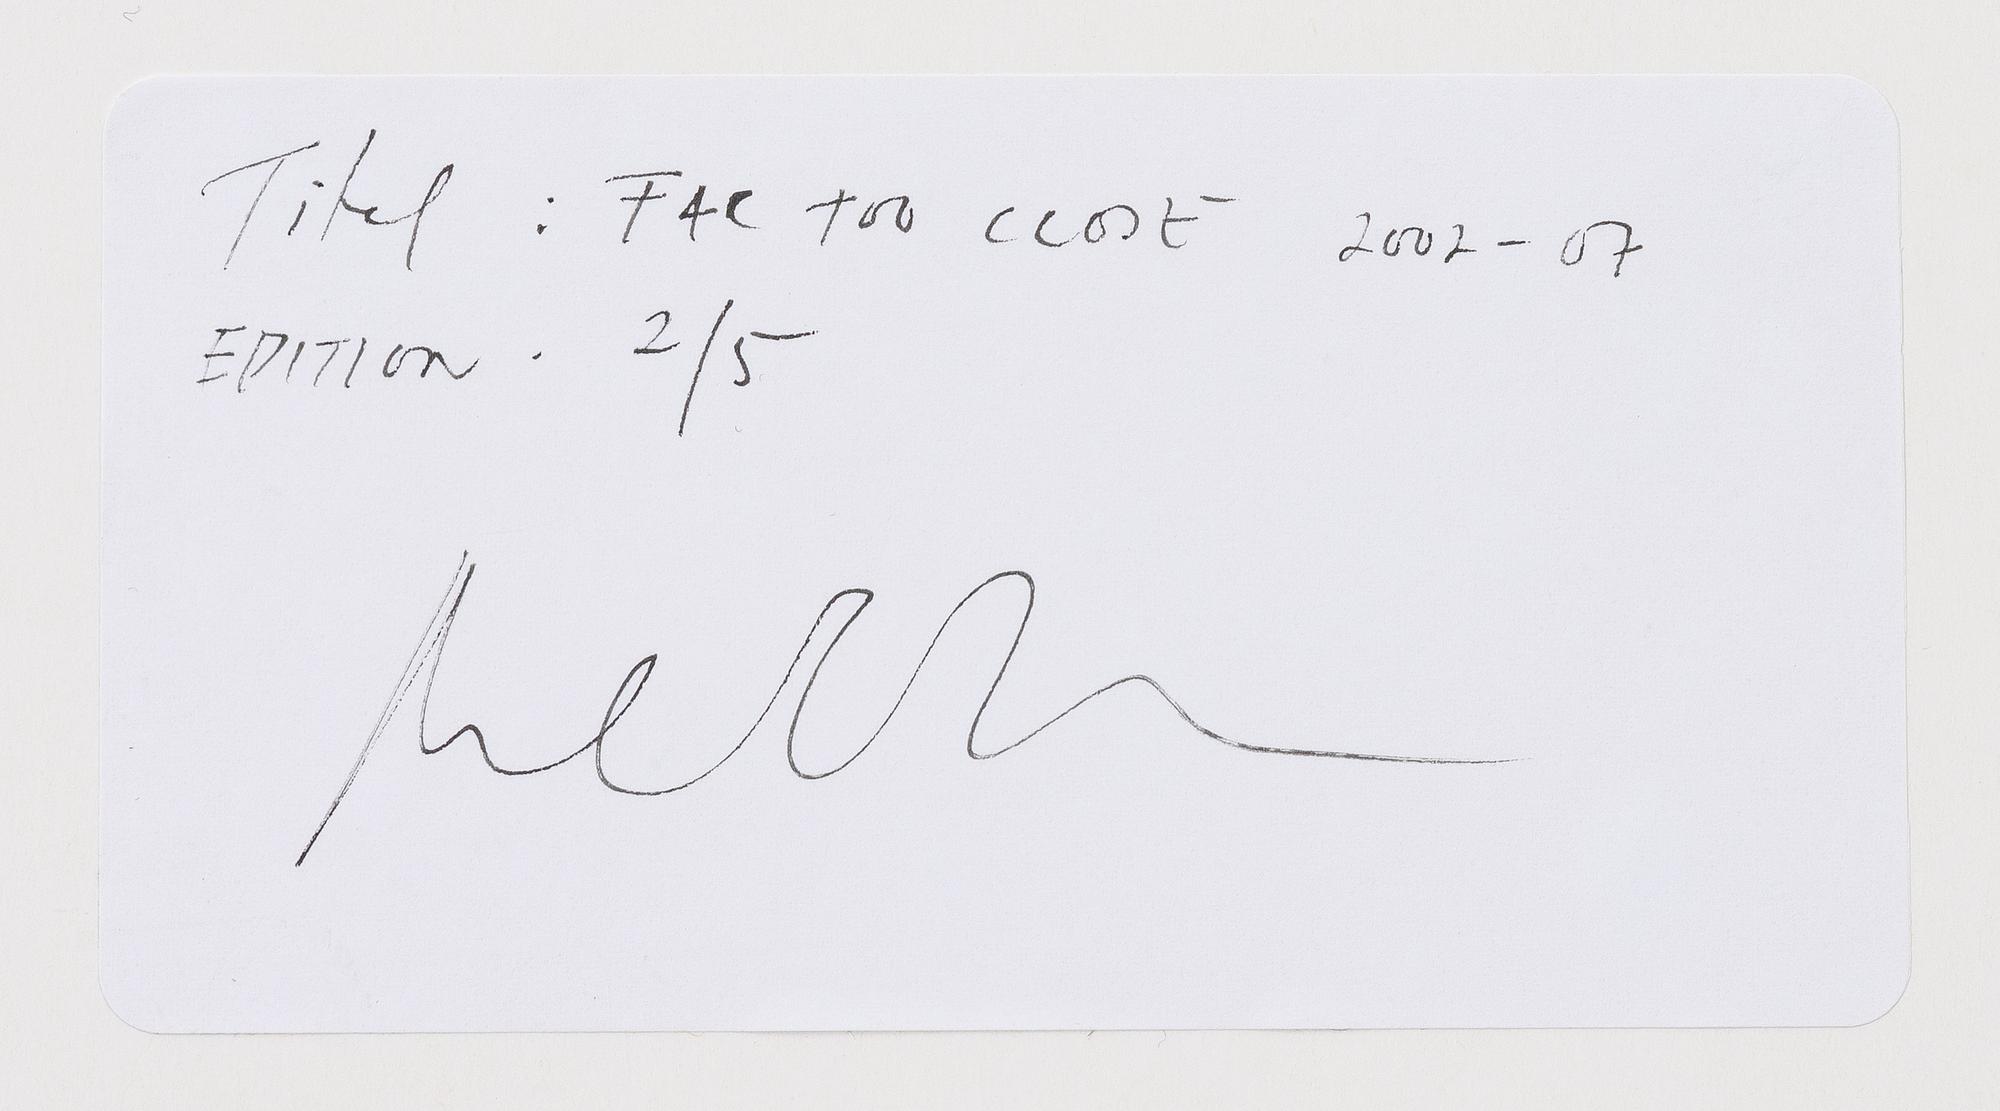 Titel : FAR TOO CLOSE 2002-07
EDITION : 2/5